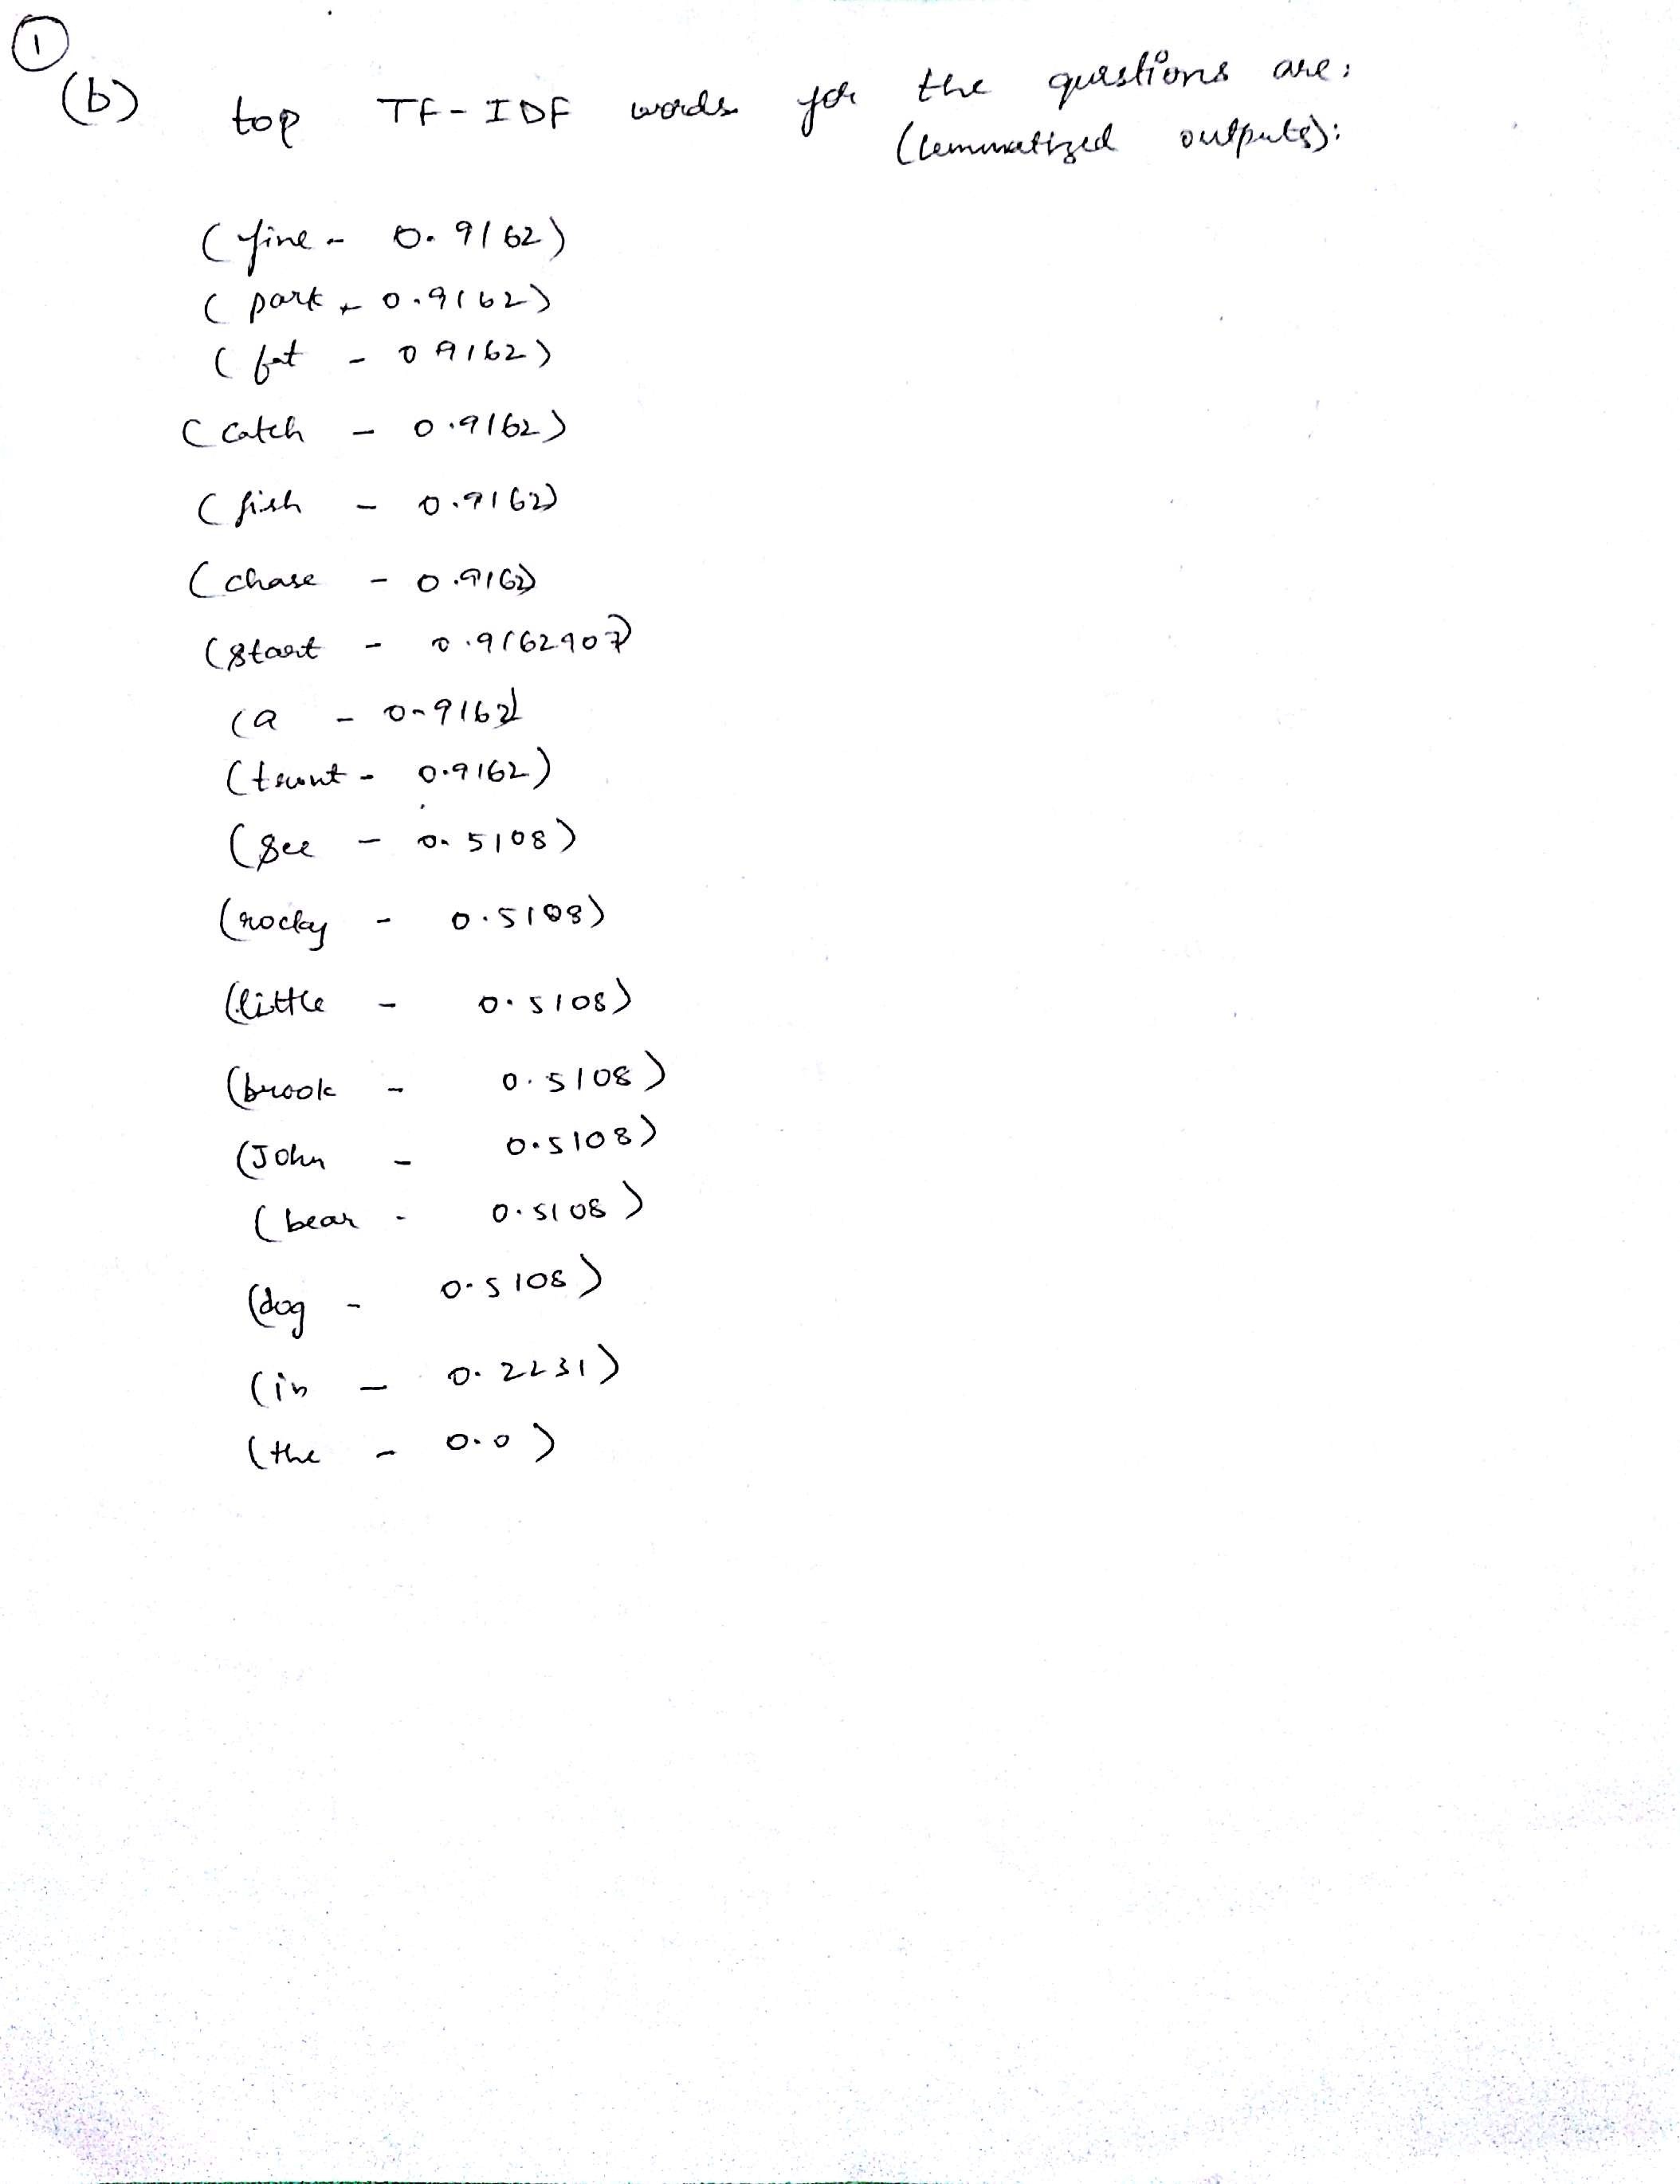 1
(b) top TF-IDF words for the questions are:
(lemmatized outputs):
(fine - 0.9162)
(park - 0.9162)
(fat - 0.9162)
(catch - 0.9162)
(fish - 0.9162)
(chase - 0.9162)
(start - 0.9162907)
(a - 0.9162)
(trout - 0.9162)
(see - 0.5108)
(rocky - 0.5108)
(little - 0.5108)
(brook - 0.5108)
(John - 0.5108)
(bear - 0.5108)
(dog - 0.5108)
(in - 0.2231)
(the - 0.0)